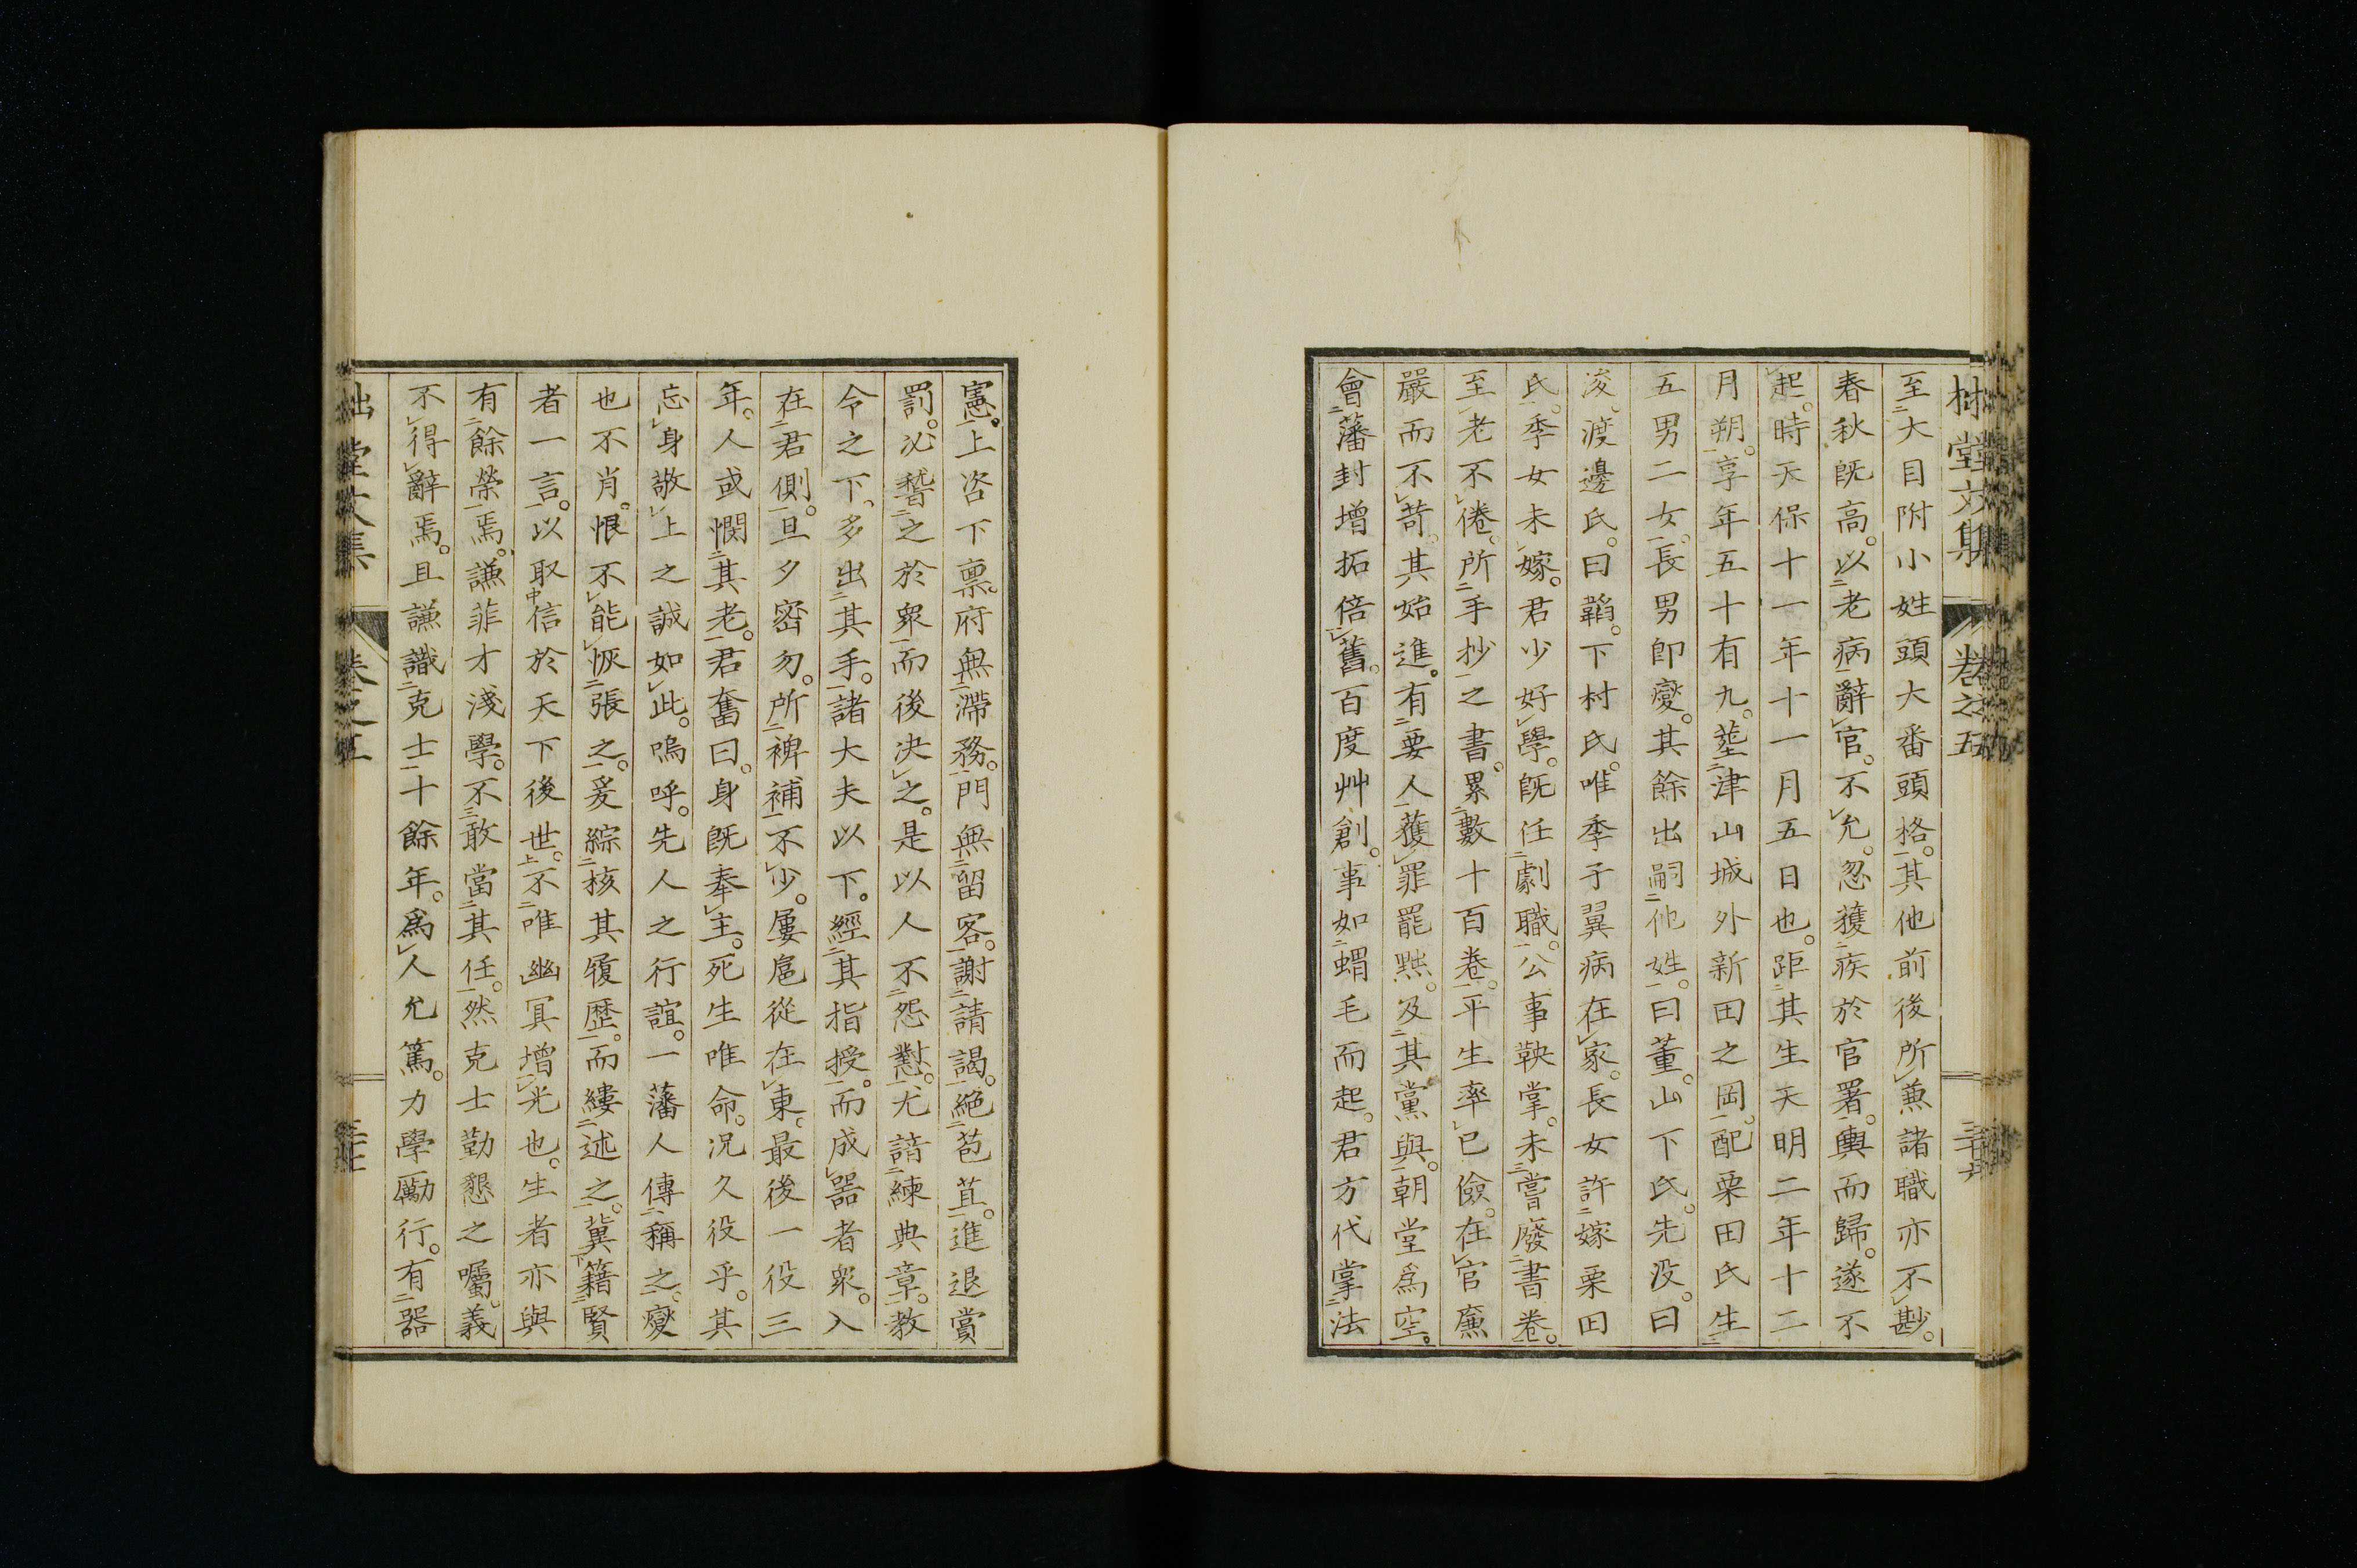 至大目附小姓頭大番頭格。其他前後所兼諸職亦不尠。
春秋既高。以老病辭官。不允。忽獲疾於官署。輿而歸。遂不
起。時天保十一年十一月五日也。距其生天明二年十二
月朔。享年五十有九。塟津山城外新田之岡。配栗田氏生
五男二女。長男即燮。其餘出嗣他姓。曰董。山下氏。先没。曰
浚。渡邊氏。曰韜。下村氏。唯季子翼病在家。長女許嫁栗田
氏。季女未嫁。君少好學。既任劇職。公事鞅掌。未嘗廢書卷。
至老不倦。所手抄之書。累數十百卷。平生率已儉。在官廉
嚴而不苛。其始進。有要人獲罪罷黜。及其黨與。朝堂爲空。
會藩封增拓倍舊。百度艸創。事如蝟毛而起。君方代掌法
憲。上咨下稟。府無滯務。門無留客。謝請謁。絕苞苴。進退賞
罰。必稽之於衆而後決之。是以人不怨懟。尤諳練典章。教
令之下。多出其手。諸大夫以下。經其指授。而成器者衆。入
在君側。旦夕密勿。所裨補不少。屢扈從在東。最後一役三
年。人或憫其老。君奮曰。身既奉主。死生唯命。況久役乎。其
忘身敬上之誠如此。嗚呼。先人之行誼。一藩人傳稱之。燮
也不肖。恨不能恢張之。爰綜核其履歷。而縷述之。冀籍賢
者一言。以取信於天下後世。不唯幽冥增光也。生者亦與
有餘榮焉。謙菲才淺學。不敢當其任。然克士勤懇之囑。義
不得辭焉。且謙識克士十餘年。爲人允篤。力學勵行。有器